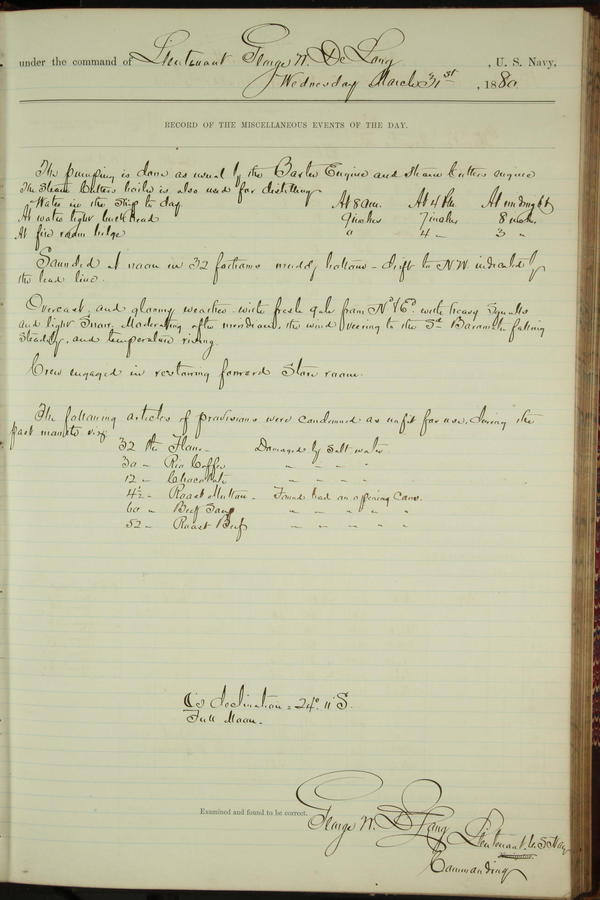 under the command of Lieutenant George W. De Long, U. S. Navy,
Wednesday March 31st, 1880.
RECORD OF THE MISCELLANEOUS EVENTS OF THE DAY.
The pumping is done as usual by the Baxter Engine and steam cutters engine
The Steam Cutters boiler is also used for distilling
Water in the ship to day At 8 am. At 4 Pm. At midnight
At water tight bulkhead 9 inches 7 inches 8 inches
At fire room bilge " 4 " 3 "
Sounded at noon in 32 fathoms muddy bottom - drift to N.W. indicated by
the lead line.
Overcast, and gloomy weather with fresh gale from Nd & Ed. with heavy squalls
and light snow. Moderating after meridian, the wind veering to the Sd Barometer falling
steadily, and temperature rising.
Crew engaged in restowing forward Store room.
The following articles of provisions were condemned as unfit for use, during the
past month viz:
32 lbs Flour - Damaged by salt water
30 " Rio Coffee " " " "
12 " Chocolate " " " "
4½ " Roast Mutton - Found bad on opening cans.
60 " Beef Soup " " " " "
52 " Roast Beef " " " " "
☾'s declination = 24° 11' S.
Full Moon.
Examined and found to be correct.
George W. De Long Lieutenant, U.S. Navy
Commanding